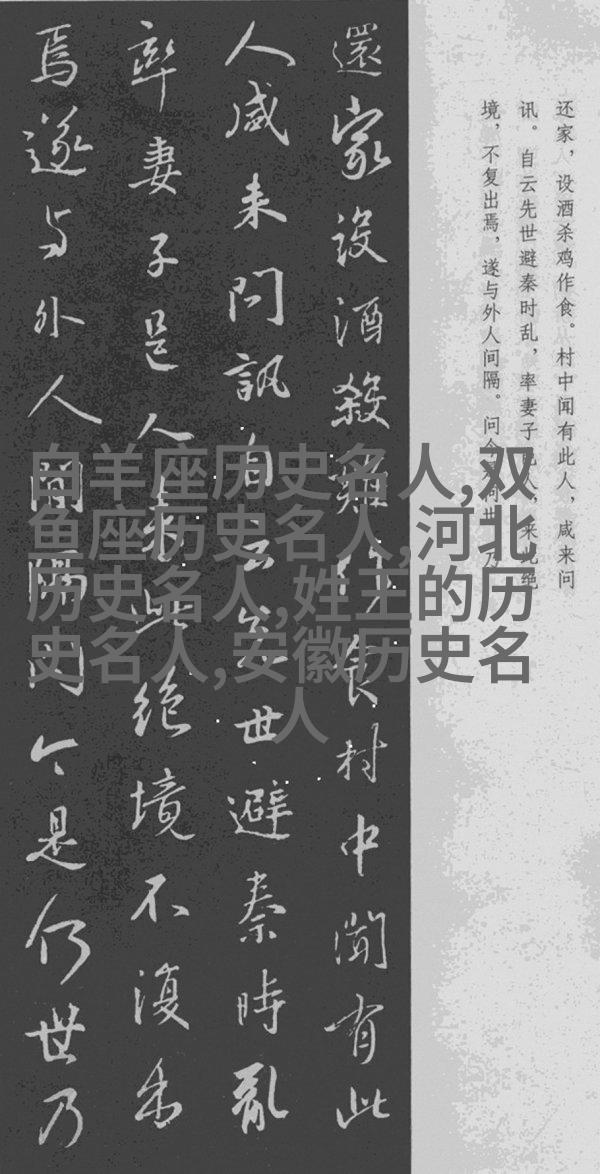 还家，设酒杀鸡作食。村中闻有此人，咸来问
讯。自云先世避秦时乱，率妻子邑人，来此绝
境，不复出焉，遂与外人间隔。问今是何世，乃
還家設酒殺雞作食村中聞有此
人咸来問訊自云先世避秦時亂
率妻子邑人来此絶境不復出
焉遂与外人間隔問今是何世乃
白羊座历史名人,双
鱼座历史名人,河北
历史名人,姓王的历
史名人,安徽历史名
人